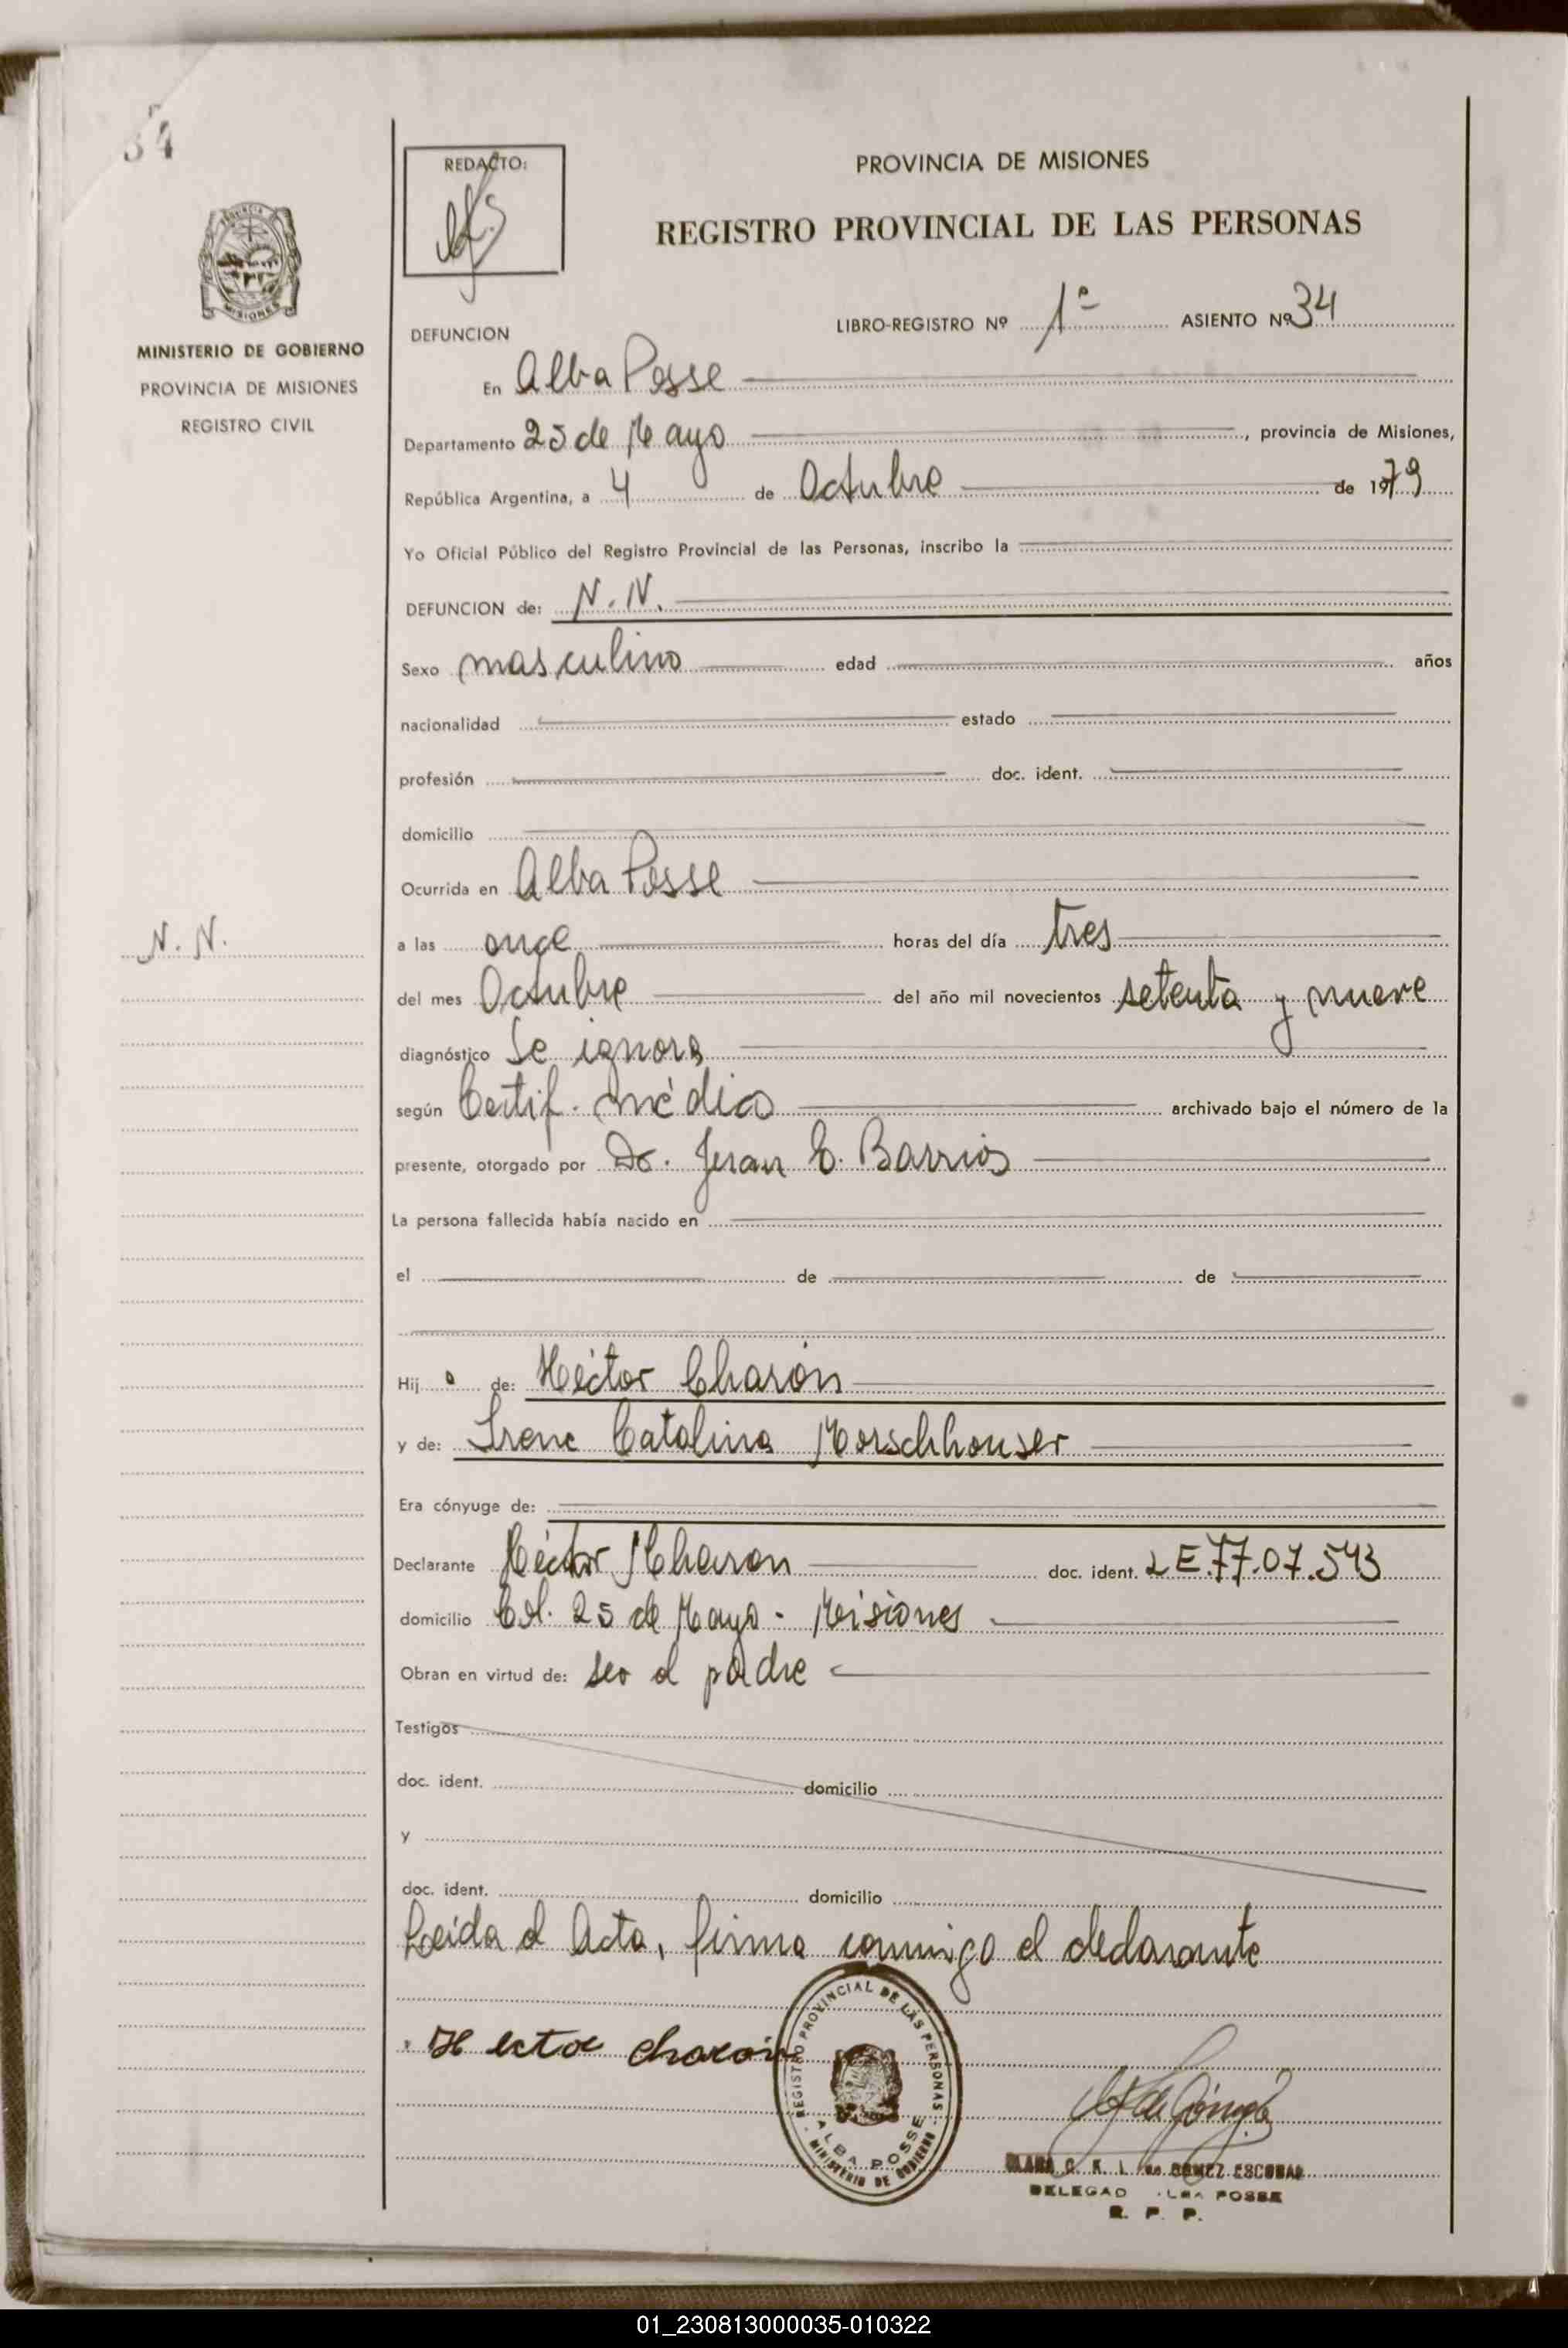 34
REDACTO:
PROVINCIA DE MISIONES
REGISTRO PROVINCIAL DE LAS PERSONAS
MISIONES
MINISTERIO DE GOBIERNO
PROVINCIA DE MISIONES
REGISTRO CIVIL
LIBRO-REGISTRO Nº 1º ASIENTO Nº 34
DEFUNCION
En Alba Posse
Departamento 25 de Mayo, provincia de Misiones,
República Argentina, a 4 de Octubre de 1979
Yo Oficial Público del Registro Provincial de las Personas, inscribo la
DEFUNCION de: N.N.
Sexo masculino edad años
nacionalidad estado
profesión doc. ident.
domicilio
Ocurrida en Alba Posse
N. N.
a las once horas del día tres
del mes Octubre del año mil novecientos setenta y nueve
diagnóstico Se ignora
según Certif. médico archivado bajo el número de la
presente, otorgado por Dr. Juan E. Barrios
La persona fallecida había nacido en
el de de
Hij o de: Héctor Charón
y de: Irene Catalina Morschhouser
Era cónyuge de:
Declarante Héctor Charon doc. ident. LE.77.07.543
domicilio Col. 25 de Mayo - Misiones
Obran en virtud de: ser el padre
Testigos
doc. ident. domicilio
y
doc. ident. domicilio
Leída el Acta, firma conmigo el declarante
Hector charon
REGISTRO PROVINCIAL DE LAS PERSONAS
ALBA POSSE
MINISTERIO DE GOBIERNO
GOMEZ ESCOBAR
POSSE
R. P. P.
01_230813000035-010322